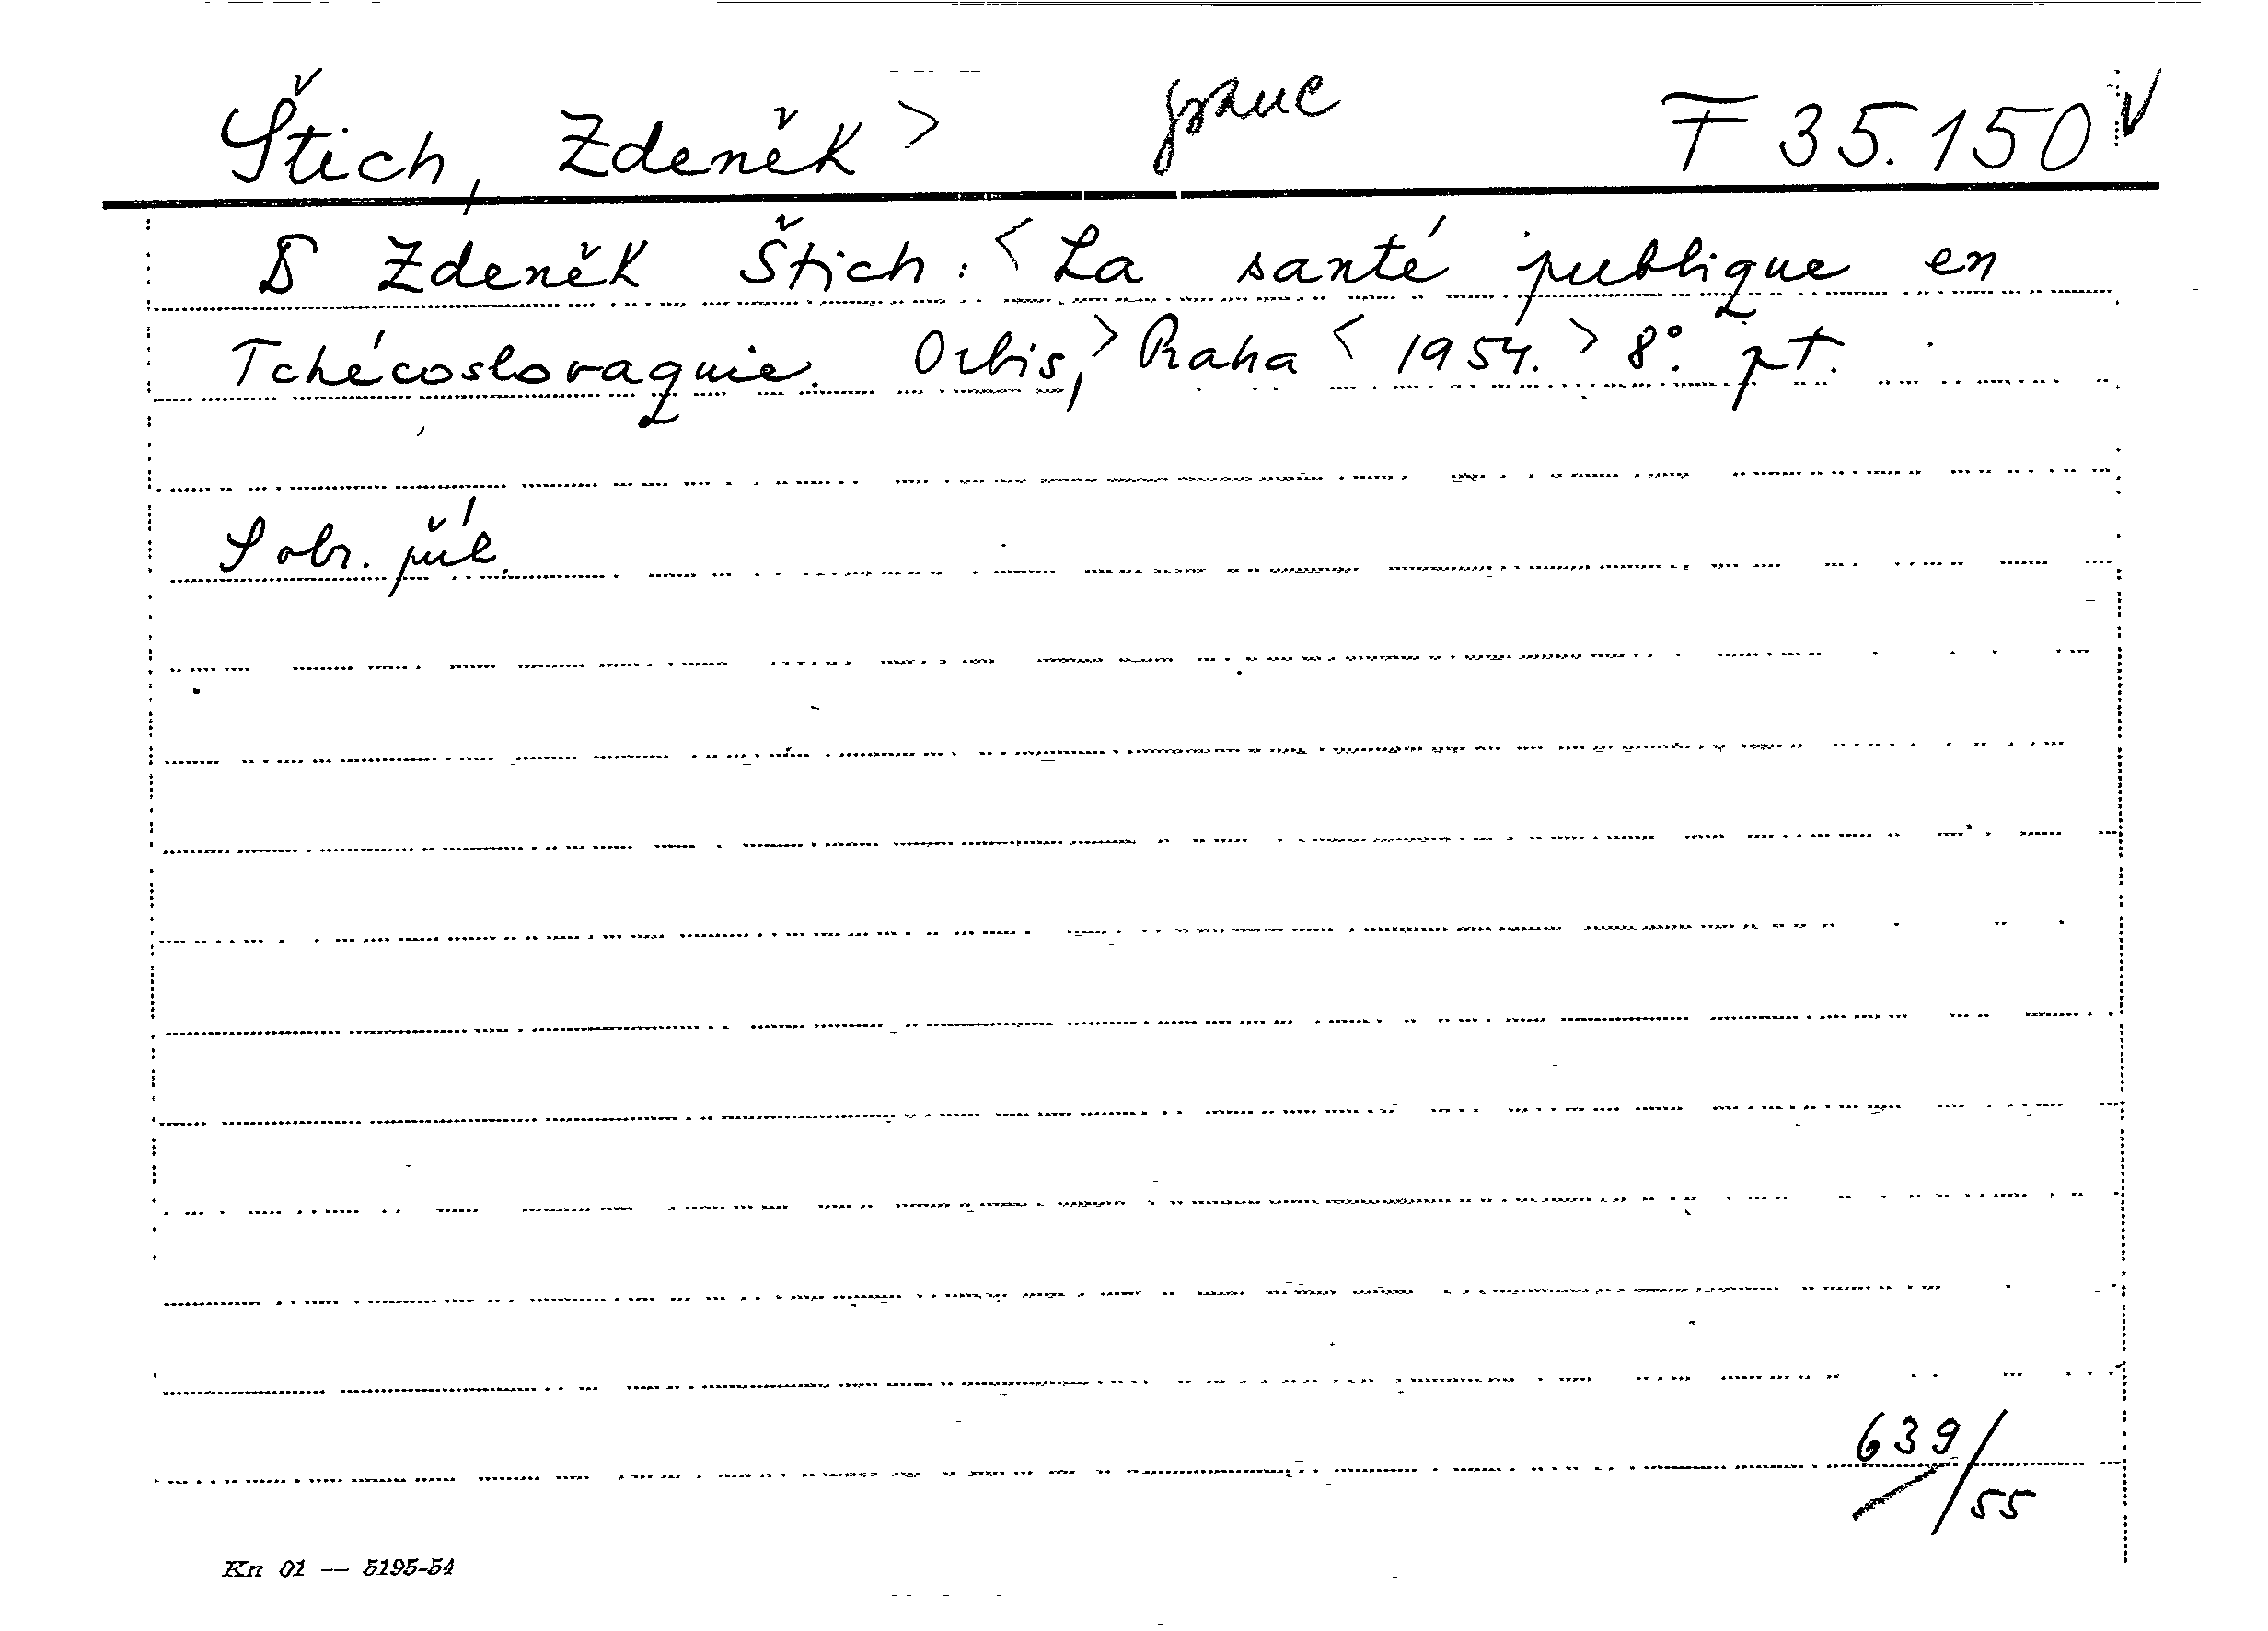 Štich, Zdeněk > franc F 35.150
Zdeněk Štich: < La santé publique en
Tchécoslovaquie. Orbis, > Praha < 1954. > 8°. pt.
S obr. příl.
639/55
Kn 01 — 5195-54